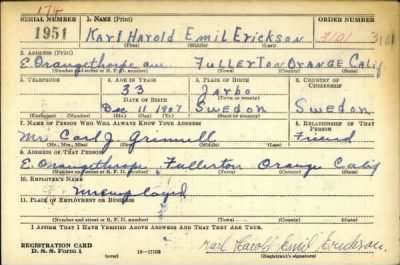 174
SERIAL NUMBER 1. NAME (Print) ORDER NUMBER
1951 Karl Harold Emil Erickson 3101 3101
(First) (Middle) (Last)
2. ADDRESS (Print)
E. Orangethorpe ave FULLERTON ORANGE Calif
(Number and street or R. F. D. number) (Town) (County) (State)
3. TELEPHONE 4. AGE IN YEARS 5. PLACE OF BIRTH 6. COUNTRY OF CITIZENSHIP
33 Jarbo
DATE OF BIRTH (Town or county)
Dec 11 1907 Sweden Sweden
(Mo.) (Day) (Yr.) (State or country)
7. NAME OF PERSON WHO WILL ALWAYS KNOW YOUR ADDRESS 8. RELATIONSHIP OF THAT PERSON
Mr Carl J. Friend
(Mr., Mrs., Miss) (First) (Middle) (Last)
9. ADDRESS OF THAT PERSON
E. Orangethorpe Fullerton Orange Calif
(Number and street or R. F. D. number) (Town) (County) (State)
10. EMPLOYER'S NAME
Unemployed
11. PLACE OF EMPLOYMENT OR BUSINESS
(Number and street or R. F. D. number) (Town) (County) (State)
I AFFIRM THAT I HAVE VERIFIED ABOVE ANSWERS AND THAT THEY ARE TRUE.
REGISTRATION CARD
D. S. S. Form 1 (over) Karl Harold Emil Erickson.
(Registrant's signature)